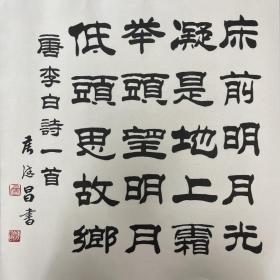 床前明月光
凝是地上霜
舉頭望明月
低頭思故鄉
唐李白詩一首
昌書